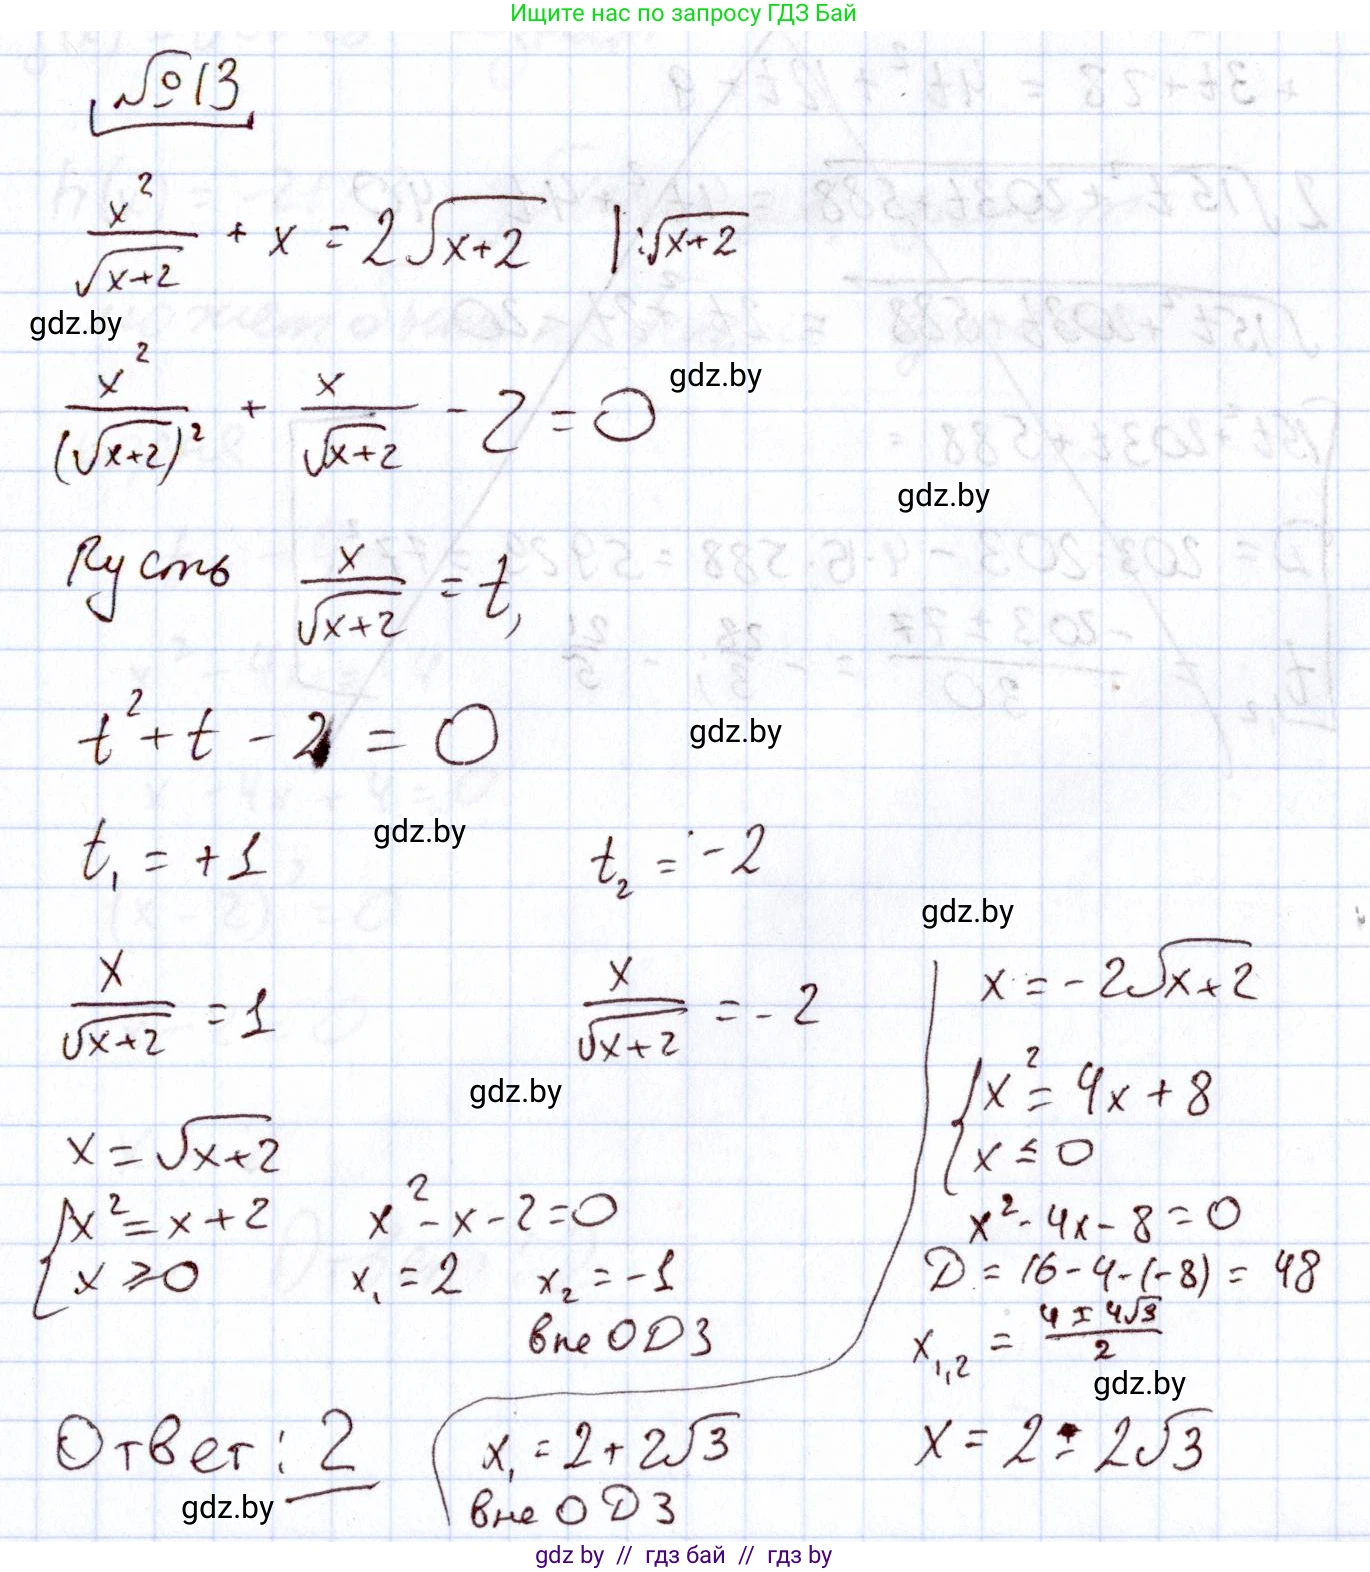 Ищите нас по запросу ГДЗ Бай
№13
x²/√(x+2) + x = 2√(x+2) |:√(x+2)
gdz.by
x²/(√(x+2))² + x/√(x+2) - 2 = 0
gdz.by
gdz.by
Пусть x/√(x+2) = t,
t² + t - 2 = 0
gdz.by
gdz.by
t₁ = +1 t₂ = -2
gdz.by
x/√(x+2) = 1 x/√(x+2) = -2
gdz.by
x = √(x+2)
{x² = x+2
x ≥ 0
x² - x - 2 = 0
x₁ = 2 x₂ = -1
вне ОДЗ
x = -2√(x+2)
{x² = 4x + 8
x ≤ 0
x² - 4x - 8 = 0
D = 16 - 4 - (-8) = 48
x₁,₂ = (4 ± 4√3)/2
gdz.by
x = 2 ± 2√3
x₁ = 2 + 2√3
вне ОДЗ
Ответ: 2
gdz.by
gdz by // гдз бай // гдз by